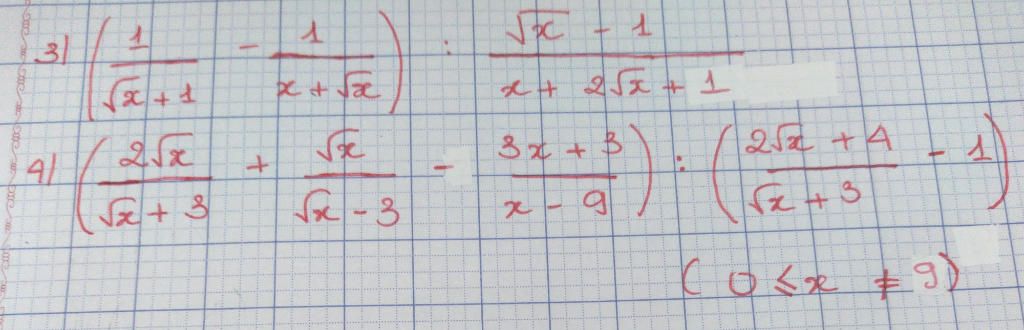 3) (1/(√x + 1) - 1/(x + √x)) : (√x - 1)/(x + 2√x + 1)
4) (2√x/(√x + 3) + √x/(√x - 3) - (3x + 3)/(x - 9)) : ((2√x + 4)/(√x + 3) - 1)
(0 ≤ x ≠ 9)